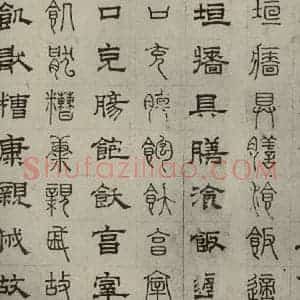 垣牆具膳飡飯適
垣牆具膳飡飯適
口充腸飽飫亯宰
口充腸飽飫亯宰
飢猒糟康親戚故
飢猒糟康親戚故
Shufaziliao.com